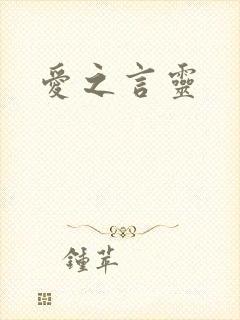 愛之言靈
鍾苹